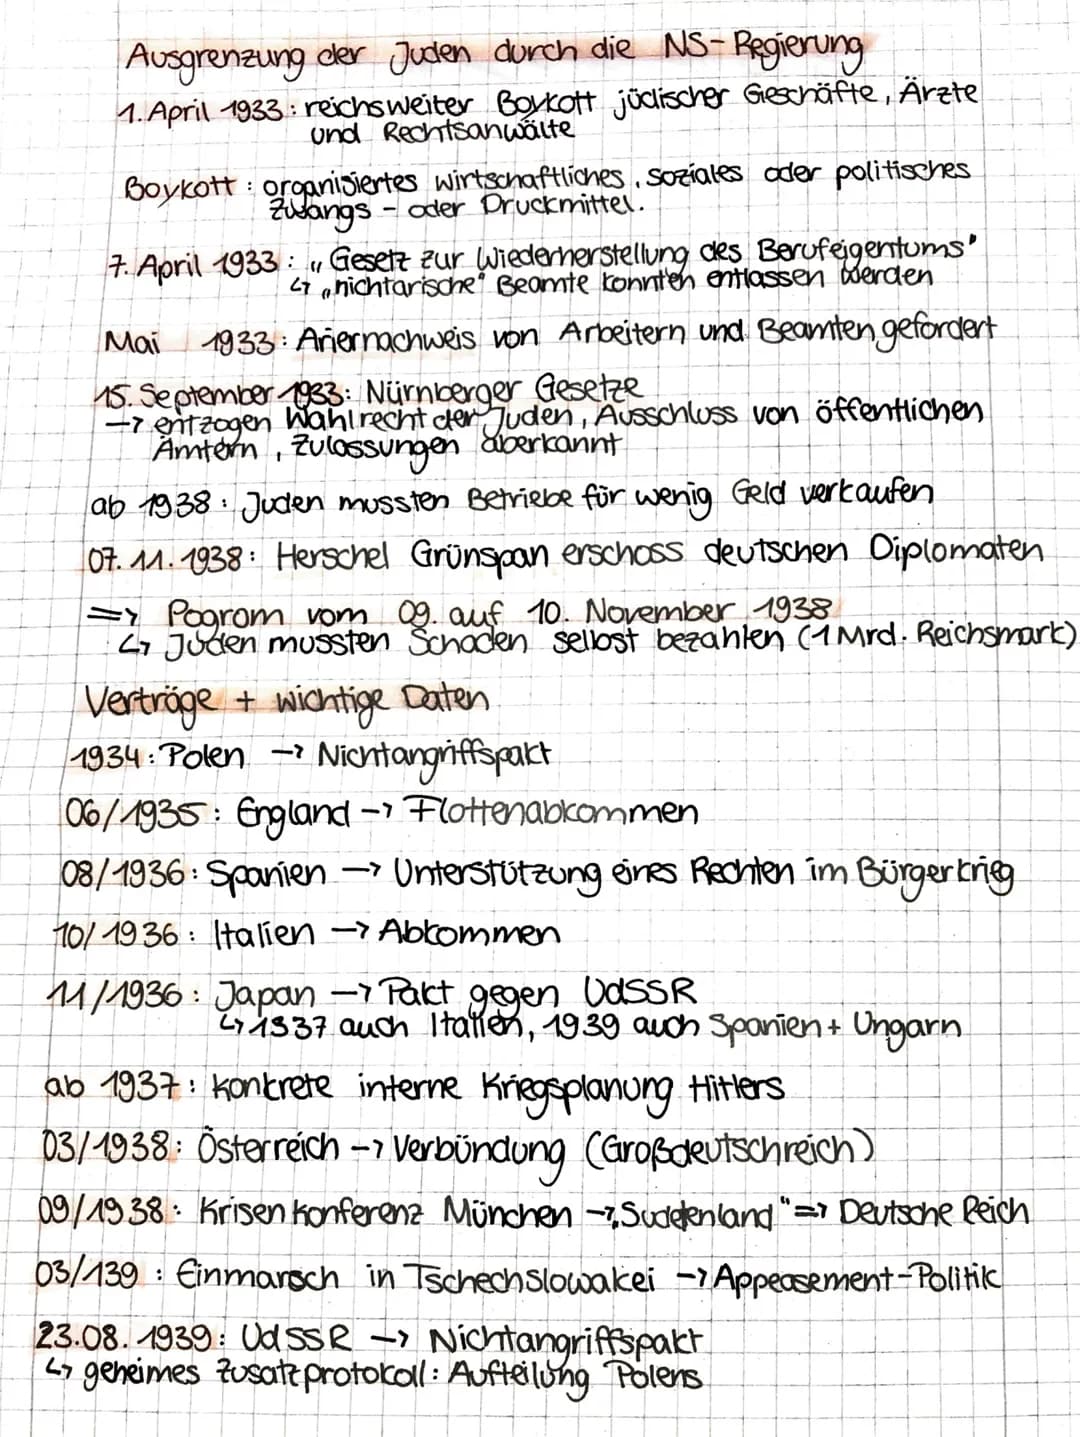 Ausgrenzung der Juden durch die NS-Regierung
1. April 1933: reichsweiter Boykott jüdischer Geschäfte, Ärzte
und Rechtsanwälte
Boykott: organisiertes wirtschaftliches, soziales oder politisches
Zwangs- oder Druckmittel.
7. April 1933: „Gesetz zur Wiederherstellung des Berufeigentums"
↳ „nichtarische" Beamte konnten entlassen werden
Mai 1933: Ariernachweis von Arbeitern und Beamten gefordert
15. September 1933: Nürnberger Gesetze
→ entzogen Wahlrecht der Juden, Ausschluss von öffentlichen
Ämtern, Zulassungen aberkannt
ab 1938: Juden mussten Betriebe für wenig Geld verkaufen
07.11.1938: Herschel Grünspan erschoss deutschen Diplomaten
=> Pogrom vom 09. auf 10. November 1938
↳ Juden mussten Schaden selbst bezahlen (1 Mrd. Reichsmark)
Verträge + wichtige Daten
1934: Polen → Nichtangriffspakt
06/1935: England → Flottenabkommen
08/1936: Spanien → Unterstützung eines Rechten im Bürgerkrieg
10/1936: Italien → Abkommen
11/1936: Japan → Pakt gegen UdSSR
↳ 1937 auch Italien, 1939 auch Spanien + Ungarn
ab 1937: konkrete interne Kriegsplanung Hitlers
03/1938: Österreich → Verbündung (Großdeutschreich)
09/1938: Krisenkonferenz München → „Suddenland" => Deutsche Reich
03/139: Einmarsch in Tschechslowakei → Appeasement-Politik
23.08.1939: UdSSR → Nichtangriffspakt
↳ geheimes Zusatzprotokoll: Aufteilung Polens